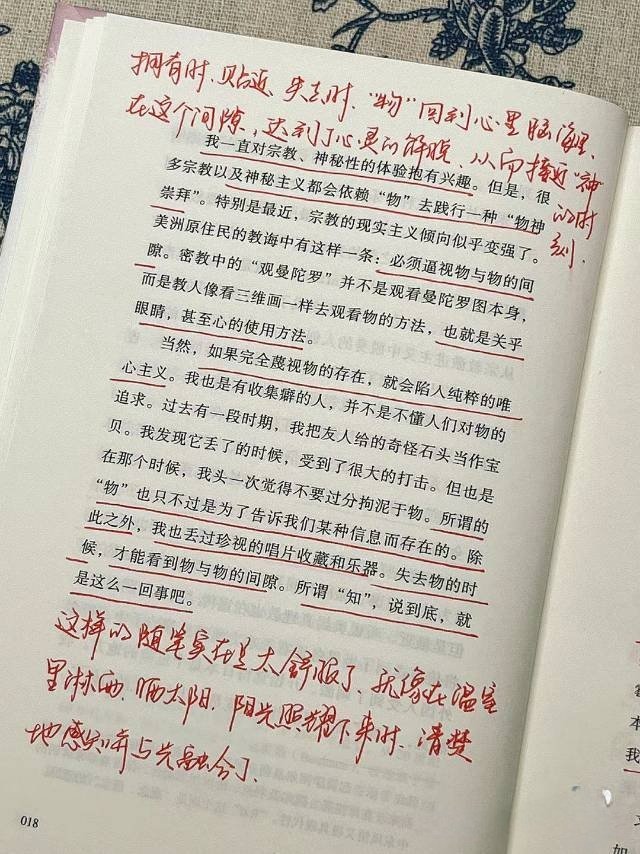 拥有时、贴近、失去时、“物”回到心里脑海里、
在这个间隙，达到了心灵的解脱、从而接近“神
的时
刻．
我一直对宗教、神秘性的体验抱有兴趣。但是，很
多宗教以及神秘主义都会依赖“物”去践行一种“物神
崇拜”。特别是最近，宗教的现实主义倾向似乎变强了。
美洲原住民的教诲中有这样一条：必须逼视物与物的间
隙。密教中的“观曼陀罗”并不是观看曼陀罗图本身，
而是教人像看三维画一样去观看物的方法，也就是关乎
眼睛，甚至心的使用方法。
当然，如果完全蔑视物的存在，就会陷入纯粹的唯
心主义。我也是有收集癖的人，并不是不懂人们对物的
追求。过去有一段时期，我把友人给的奇怪石头当作宝
贝。我发现它丢了的时候，受到了很大的打击。但也是
在那个时候，我头一次觉得不要过分拘泥于物。所谓的
“物”也只不过是为了告诉我们某种信息而存在的。除
此之外，我也丢过珍视的唱片收藏和乐器。失去物的时
候，才能看到物与物的间隙。所谓“知”，说到底，就
是这么一回事吧。
这样的随笔实在是太舒服了、就像在温室
里淋雨、晒太阳，阳光照耀下来时、清楚
地感知并与光融合了、
018
本
我
文
如